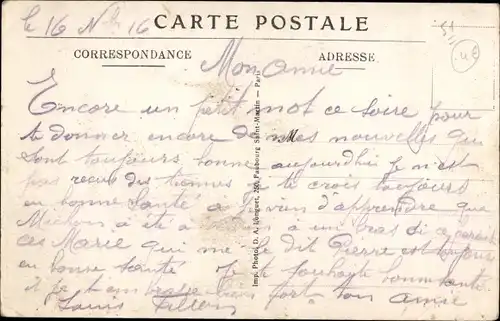 le 16 N 16
CARTE POSTALE
CORRESPONDANCE ADRESSE
51
4€
Mon amie
Encore un petit mot ce soire pour
te donner encore de mes nouvelles qui
sont toujours bonne aujourdhui Je n'est
pas recus des tiennes je te crois toujours
en bonne santé je vien d'apprendre que
a été a un bras
Marie qui me le dit Pierre est toujours
en bonne santé Je te souhaite bonne santé
et je t'embrasse bien fort ton amie
Louis
Imp. Photo. D. A. Longuet, 250, Faubourg Saint-Martin — Paris